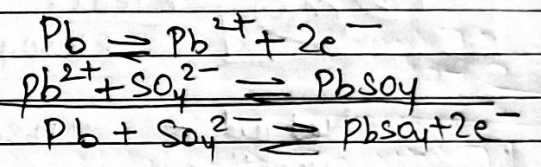 Pb ⇌ Pb²⁺ + 2e⁻
Pb²⁺ + SO₄²⁻ ⇌ PbSO₄
Pb + SO₄²⁻ ⇌ PbSO₄ + 2e⁻